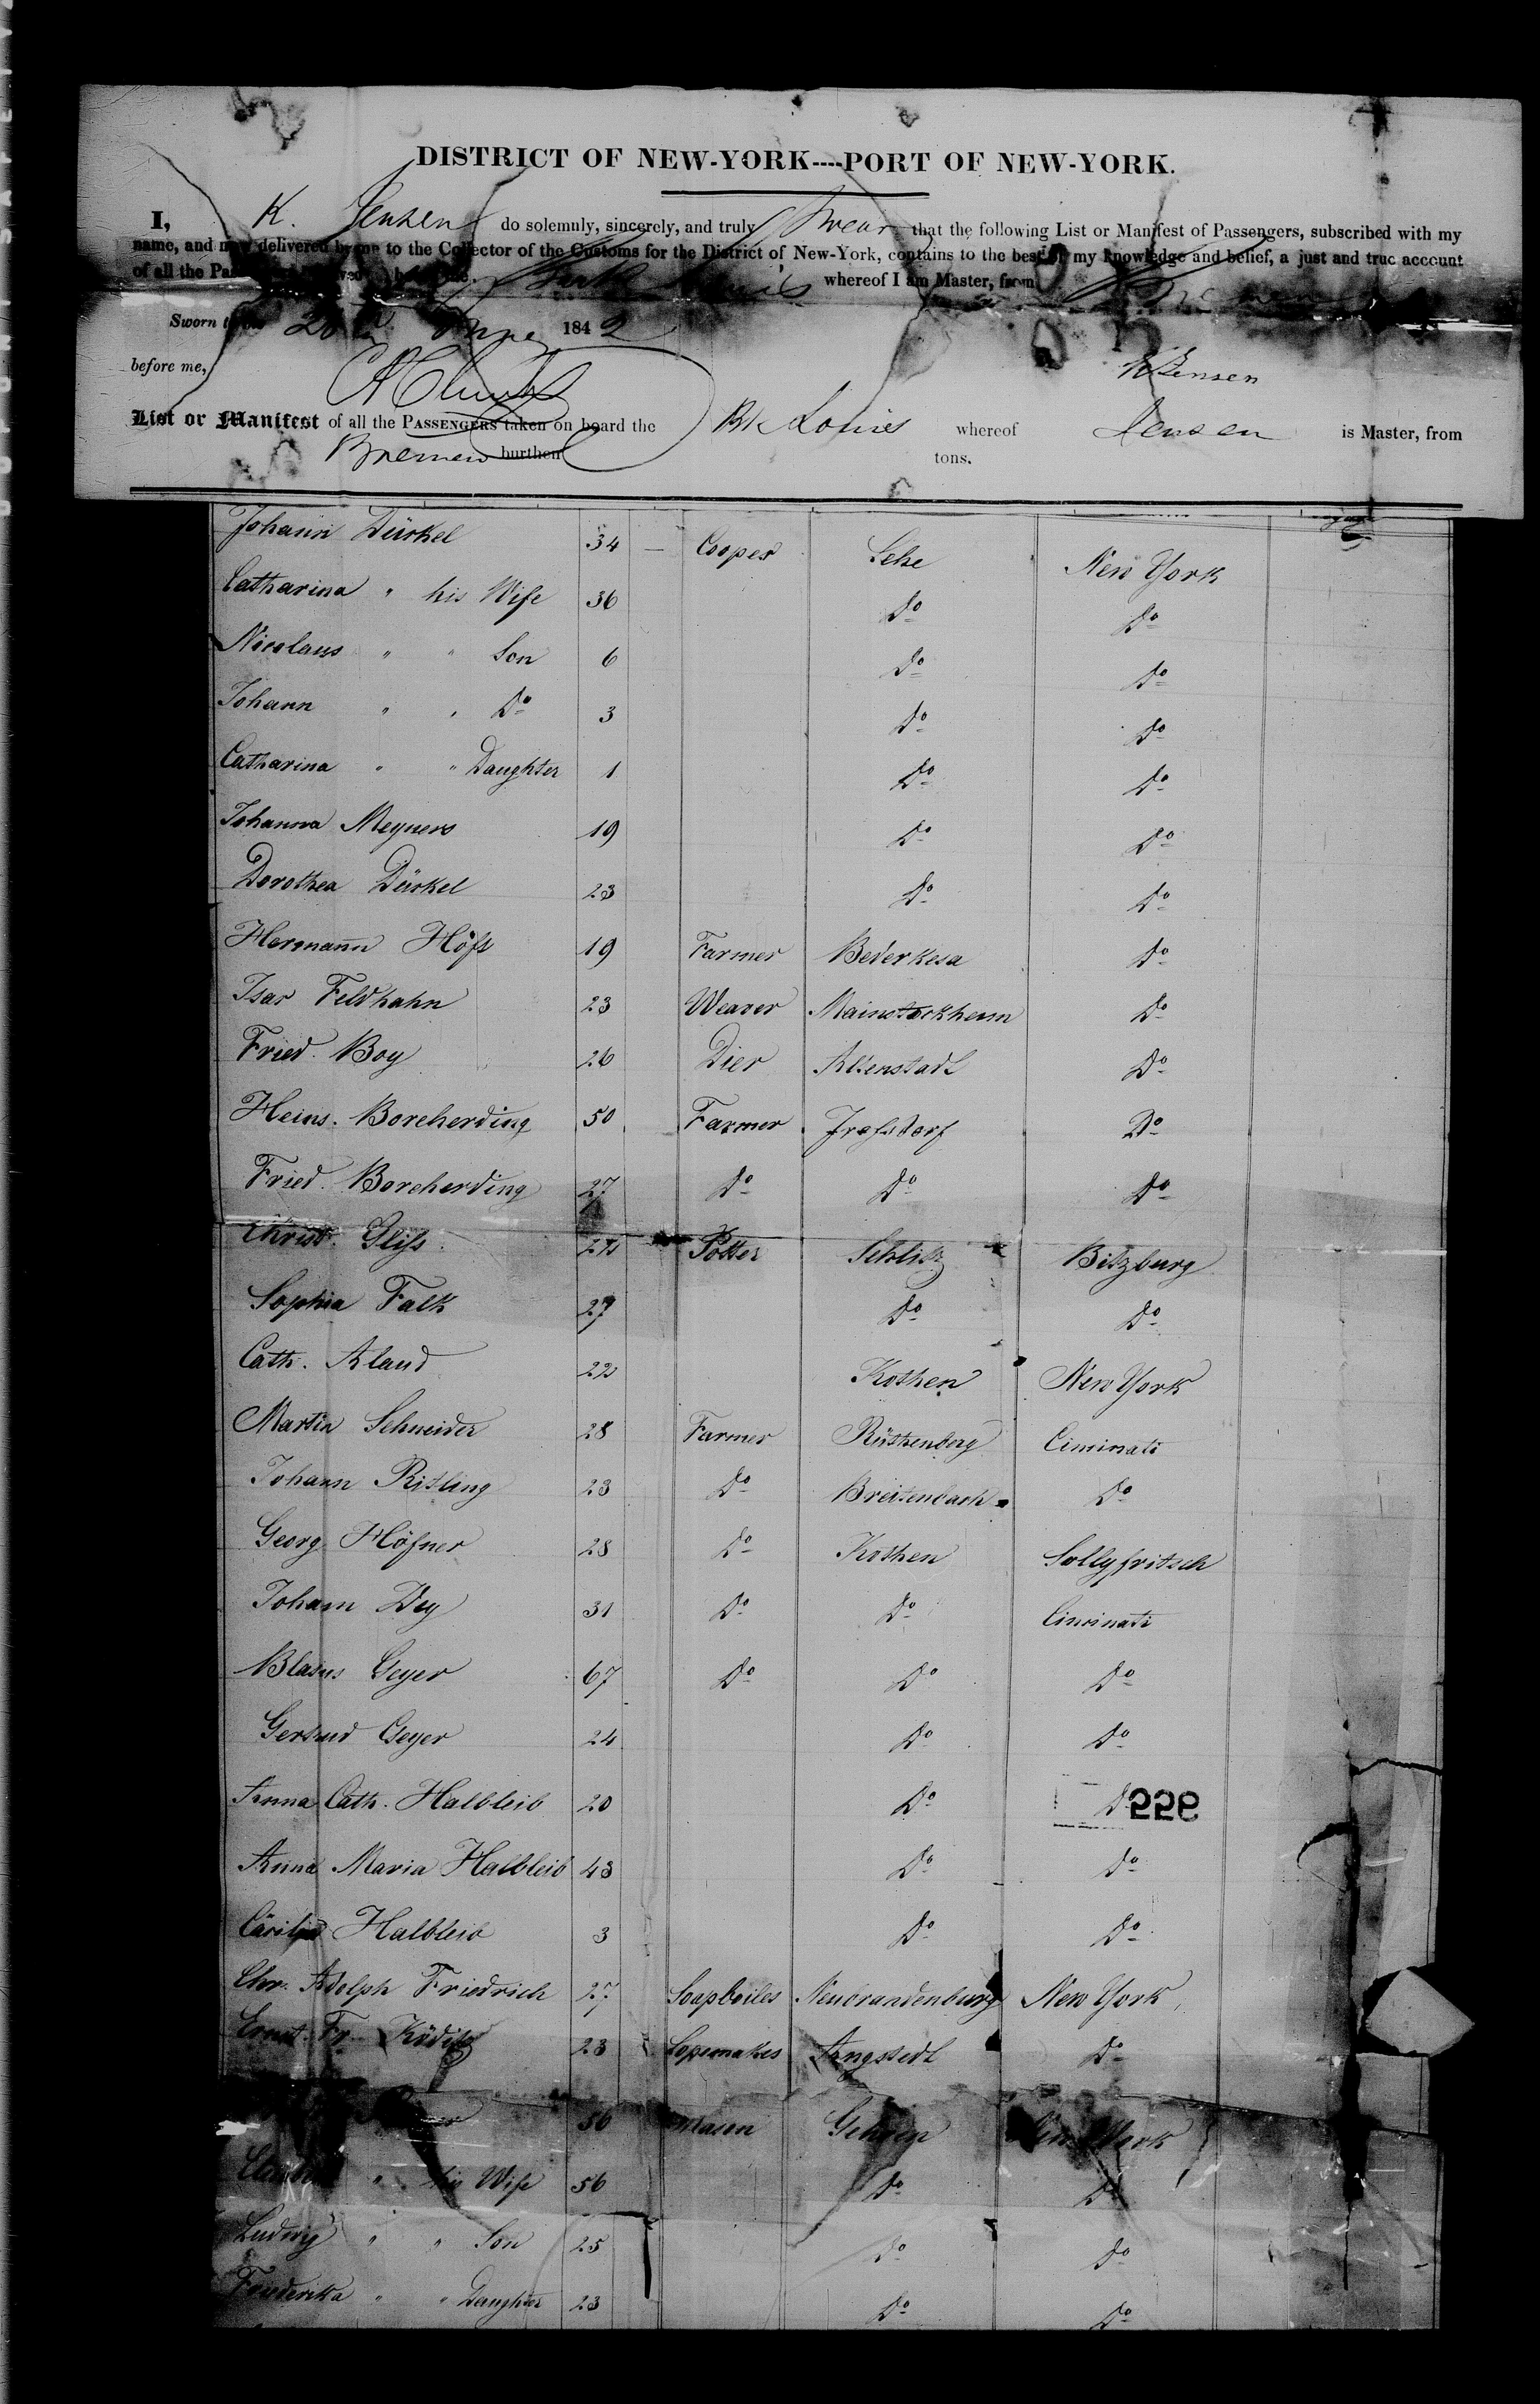 DISTRICT OF NEW-YORK----PORT OF NEW-YORK.
I, K. Jensen do solemnly, sincerely, and truly Swear that the following List or Manifest of Passengers, subscribed with my
name, and now delivered by me to the Collector of the Customs for the District of New-York, contains to the best of my knowledge and belief, a just and true account
of all the Passengers Bark Louis whereof I am Master, from Bremen
Sworn to 1842
before me,
K Jensen
List or Manifest of all the PASSENGERS taken on board the Bk Louis whereof Jensen is Master, from
Bremen burthen tons.
Johann Dürkel 34 — Cooper Lehe New York
Catharina " his Wife 36 Do Do
Nicolaus " " Son 6 Do Do
Johann " " Do 3 Do Do
Catharina " " Daughter 1 Do Do
Johanna Meyners 19 Do Do
Dorothea Dürkel 23 Do Do
Hermann Höfs 19 Farmer Bederkesa Do
Isar Feldhahn 23 Weaver Mainstockheim Do
Fried. Boy 26 Dier Altenstadt Do
Heinr. Borcherding 50 Farmer Do
Fried. Borcherding 27 Do Do Do
Christ. Gliss 22 Potter Schlitz Bitzburg
Sophia Falk 27 Do Do
Cath. Aland 22 Kothen New York
Martin Schneider 28 Farmer Rüthenberg Cininati
Johann Ritling 23 Do Breitenbach Do
Georg Höfner 28 Do Kothen Sollyfritsch
Johann Dey 31 Do Do Cininati
Blasus Geyer 67 Do Do Do
Gertrud Geyer 24 Do Do
Anna Cath. Halbleib 20 Do Do
Anna Maria Halbleib 43 Do Do
Cäcilia Halbleib 3 Do Do
Chr. Adolph Friedrich 27 Soapboiler Neubrandenburg New York
Ernst Fr. 23 Ropemaker Angstedt Do
56 Mason Gehren New York
" his Wife 56 Do Do
Ludwig " " Son 25 Do Do
Friederika " " Daughter 23 Do Do